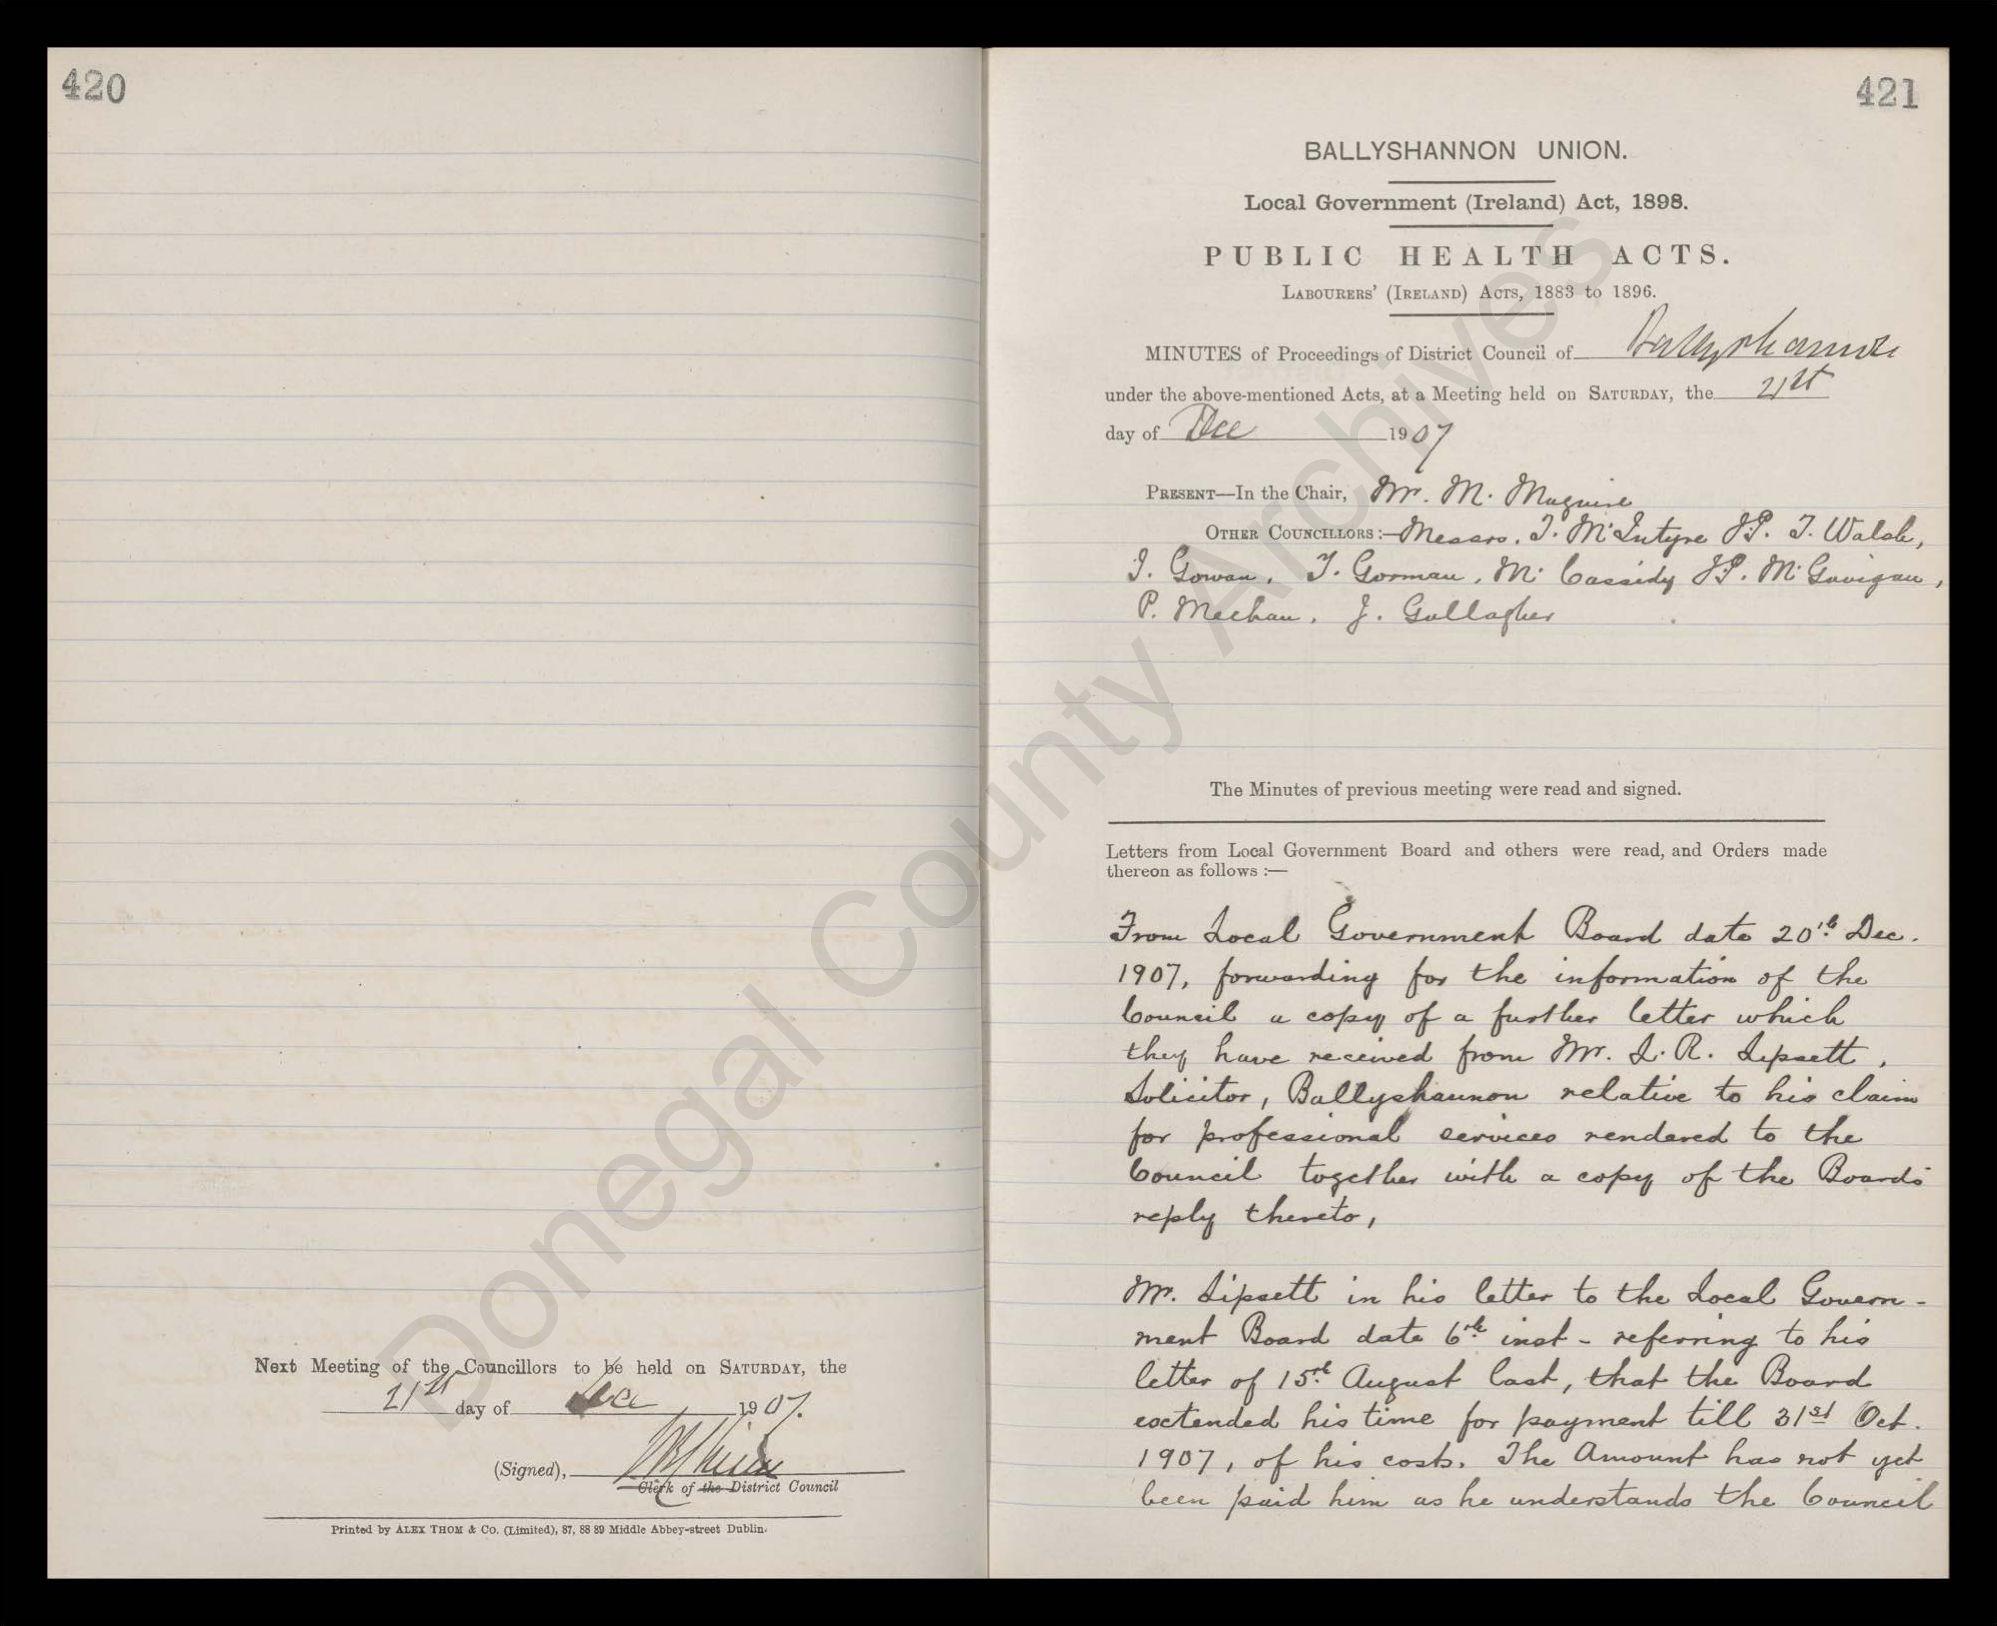 420
Next Meeting of the Councillors to be held on SATURDAY, the
21st day of Dec 1907.
(Signed),
Clerk of the District Council
Printed by ALEX THOM & Co. (Limited), 87, 88 89 Middle Abbey-street Dublin.
421
BALLYSHANNON UNION.
Local Government (Ireland) Act, 1898.
PUBLIC HEALTH ACTS.
LABOURERS' (IRELAND) ACTS, 1883 to 1896.
MINUTES of Proceedings of District Council of Ballyshannon
under the above-mentioned Acts, at a Meeting held on SATURDAY, the 21st
day of Dec 1907
PRESENT—In the Chair, Mr. M. Maguire
OTHER COUNCILLORS:—Messrs. T. McIntyre J.P. T. Walsh,
J. Gowan, T. Gorman, M. Cassidy J.P. McGavigan,
P. Meehan, J. Gallagher
The Minutes of previous meeting were read and signed.
Letters from Local Government Board and others were read, and Orders made
thereon as follows :—
From Local Government Board date 20th Dec.
1907, forwarding for the information of the
Council a copy of a further letter which
they have received from Mr. L. R. Lipsett,
Solicitor, Ballyshannon relative to his claim
for professional services rendered to the
Council together with a copy of the Boards
reply thereto,
Mr. Lipsett in his letter to the Local Govern-
ment Board date 6th inst - referring to his
letter of 15th August last, that the Board
extended his time for payment till 31st Oct.
1907, of his costs. The Amount has not yet
been paid him as he understands the Council
Donegal County Archives